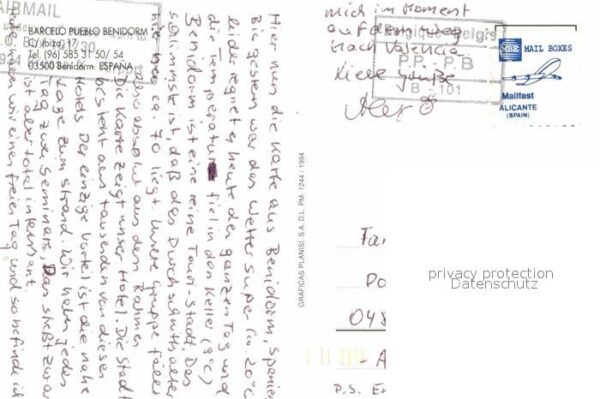 AIRMAIL
BARCELO PUEBLO BENIDORM
C/ Ibiza, 17
Tel. (96) 585 31 50 / 54
03500 Benidorm ESPAÑA
Hier nun die Karte aus Benidorm, Spanien
Bis gestern war das Wetter super (ca. 20°C)
leider regnet es heute den ganzen Tag und
die Temperatur fiel in den Keller (9°C)
Benidorm ist eine reine Touri-Stadt. Das
schlimmste ist, daß das Durchschnittsalter
hier bei ca 70 liegt. Unsere Gruppe fällt
also absolut aus dem Rahmen.
Die Karte zeigt unser Hotel. Die Stadt
besteht aus tausenden von dieser
Hotels. Der einzige Vorteil ist die nahe
Lage zum Strand. Wir haben jeden
Tag zwei Seminare. Das
ist aber total interessant
wir einen freien Tag und so befinde ich
mich im Moment
auf dem Weg
nach Valencia
Liebe Grüße
P.P. - P.B
B - 101
MBE MAIL BOXES
Mailfast
ALICANTE
(SPAIN)
GRAFICAS PLANISI. S.A. D.L. PM. 1244 / 1994
Fa
Do
048
A
P.S. E
privacy protection
Datenschutz